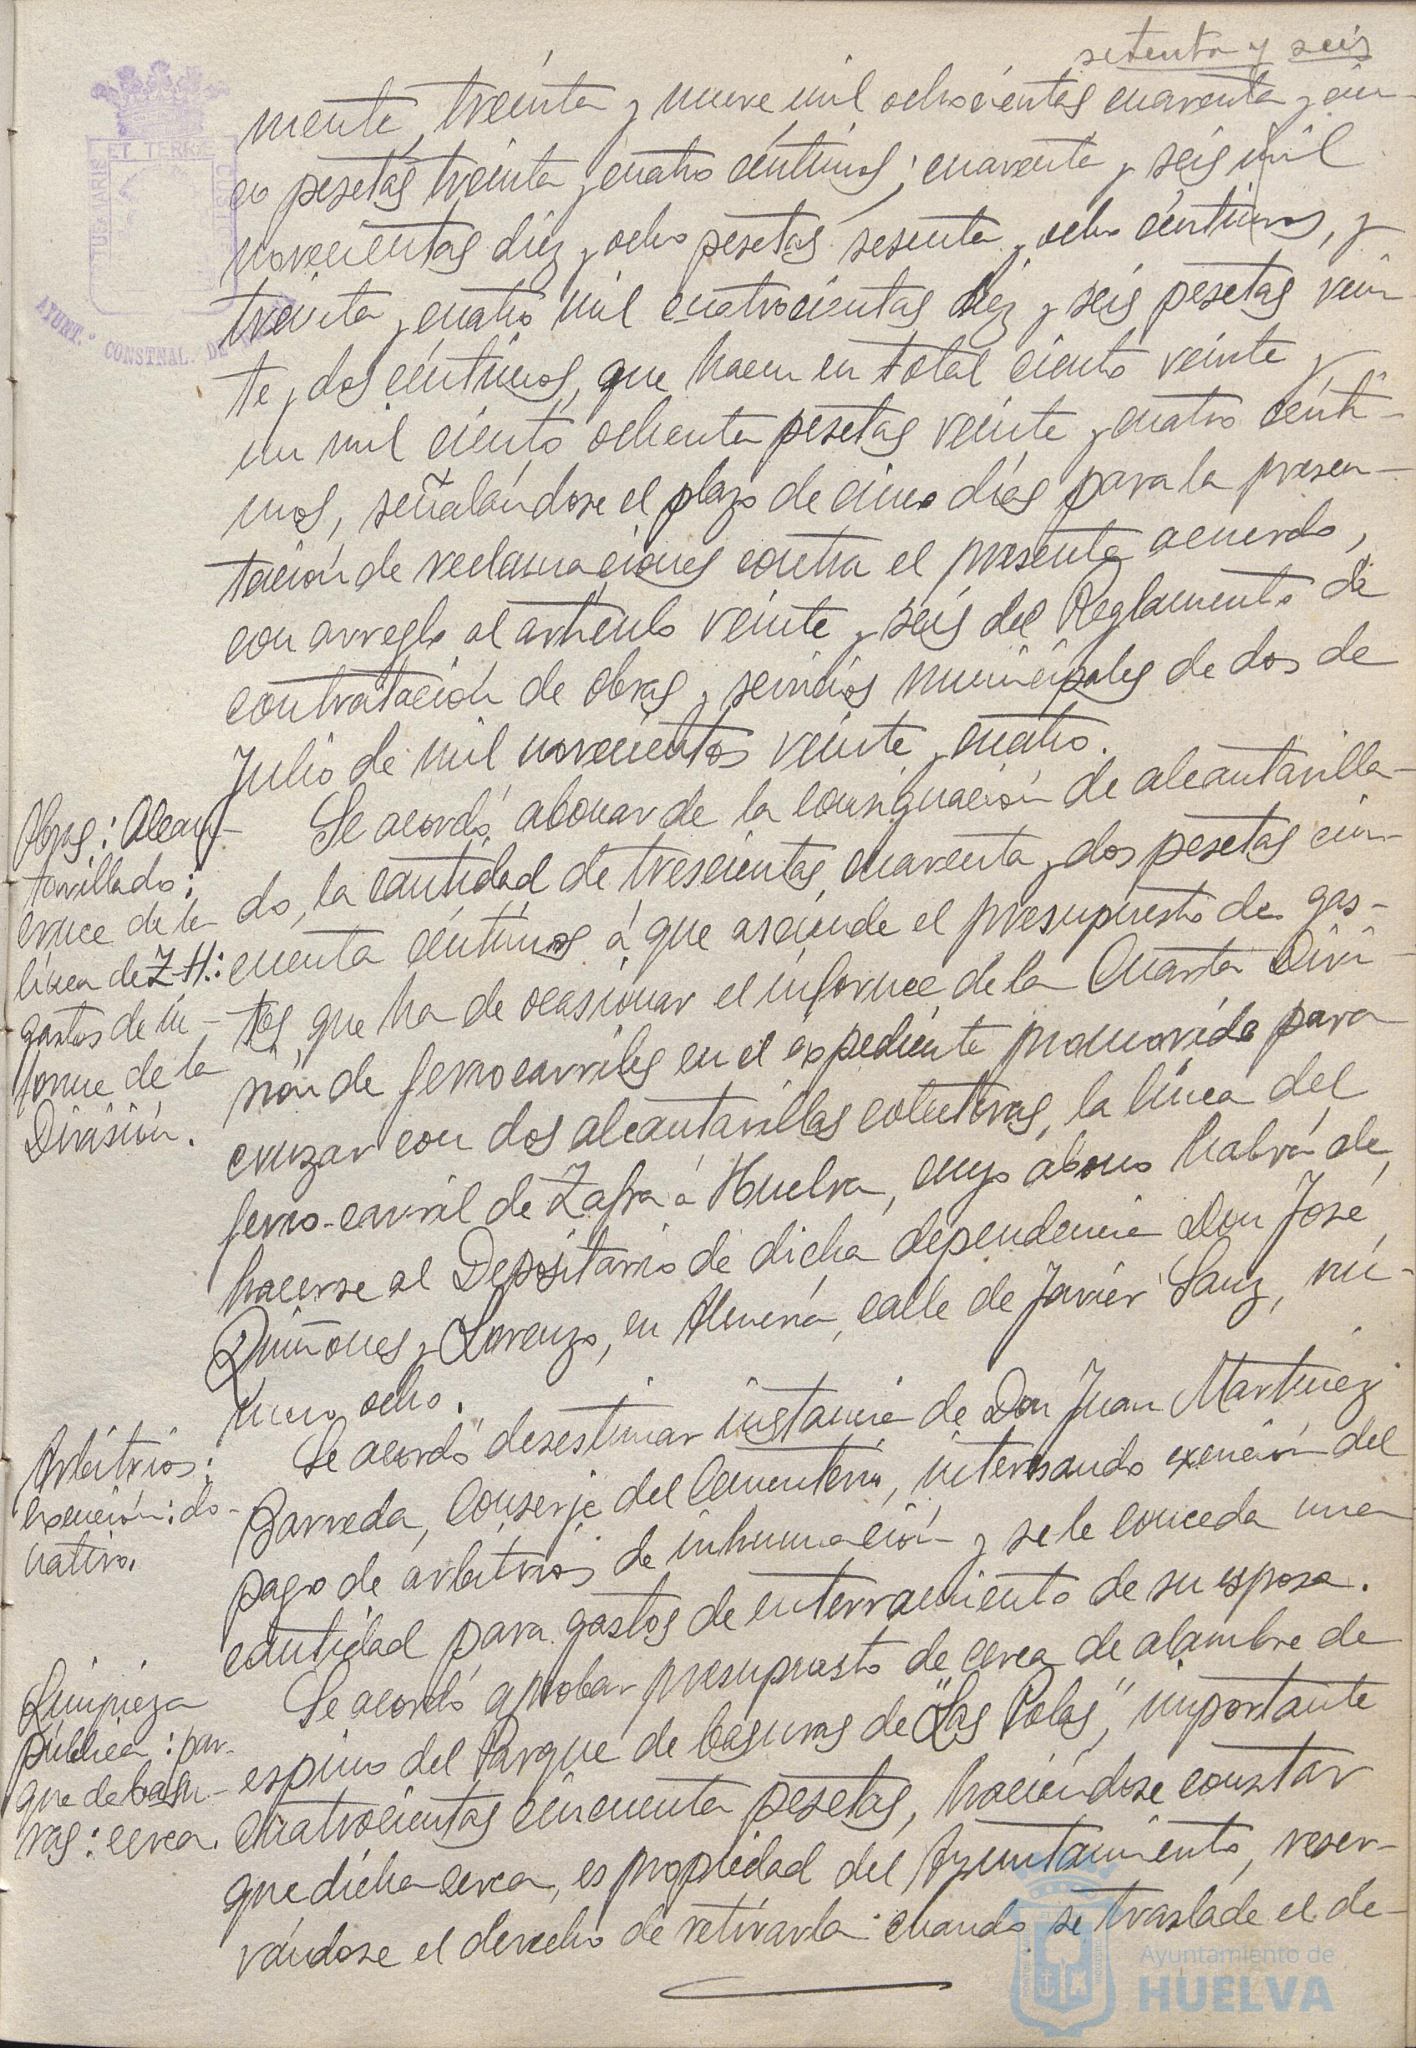 setenta y seis
mente, treinta y nueve mil ochocientas cuarenta y cin-
co pesetas treinta y cuatro céntimos; cuarenta y seis mil
novecientas diez y ocho pesetas sesenta y ocho céntimos, y
treinta y cuatro mil cuatrocientas diez y seis pesetas vein-
te y dos céntimos, que hacen en total ciento veinte y
un mil ciento ochenta pesetas veinte y cuatro cénti-
mos, señalándose el plazo de cinco días para la presen-
tación de reclamaciones contra el presente acuerdo,
con arreglo al artículo veinte y seis del Reglamento de
contratación de obras y servicios municipales de dos de
Julio de mil novecientos veinte y cuatro.
Obras: Alcan-
tarillado:
cruce de la
línea de Z-H.:
gastos de in-
forme de la
División.
Se acordó abonar de la consignación de alcantarilla-
do, la cantidad de trescientas cuarenta y dos pesetas cin-
cuenta céntimos á que asciende el presupuesto de gas-
tos que ha de ocasionar el informe de la Cuarta Divi-
sión de ferrocarriles en el expediente promovido para
cruzar con dos alcantarillas colectoras, la línea del
ferro-carril de Zafra á Huelva, cuyo abono habrá de
hacerse al Depositario de dicha dependencia Don José
Quiñones y Lorenzo, en Almería, calle de Javier Sanz, nú-
mero ocho.
Arbitrios:
exención: do-
nativo.
Se acordó desestimar instancia de Don Juan Martinez
Barreda, Conserje del Cementerio, interesando exención del
pago de arbitrios de inhumación y se le conceda una
cantidad para gastos de enterramiento de su esposa.
Limpieza
pública: par-
que de basu-
ras: cerca.
Se acordó aprobar presupuesto de cerca de alambre de
espino del Parque de basuras de "Las Polas", importante
cuatrocientas cincuenta pesetas, haciéndose constar
que dicha cerca, es propiedad del Ayuntamiento, reser-
vándose el derecho de retirarla cuando se traslade el de-
ET TERRÆ
AYUNT.º CONSTNAL. DE
Ayuntamiento de
HUELVA